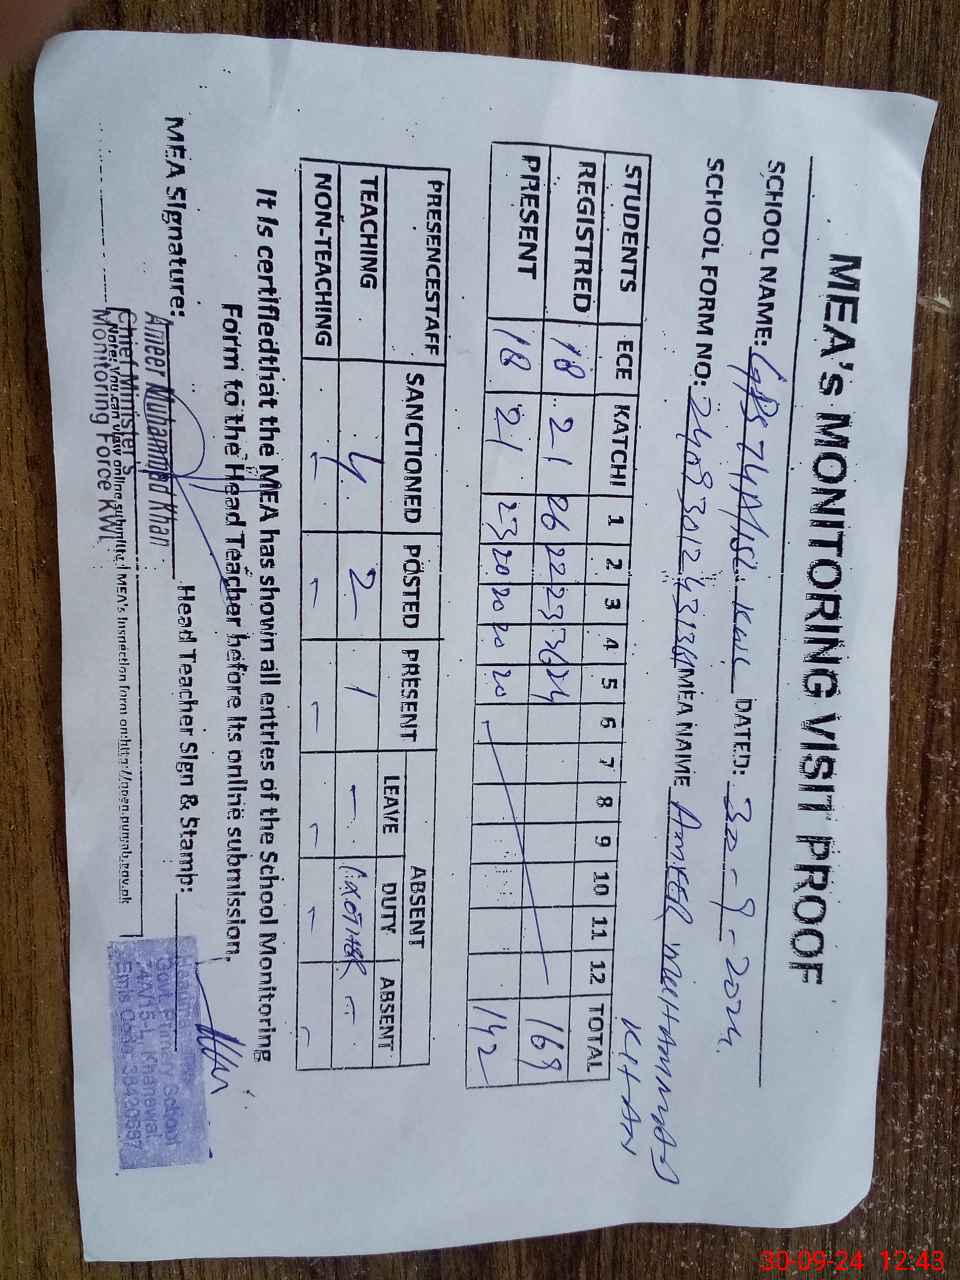 MEA's MONITORING VISIT PROOF
SCHOOL NAME: GPS 74A/15L KWL DATED: 30-9-2024
SCHOOL FORM NO: MEA NAIME AMEER MUHAMMAD
KHAN
STUDENTS ECE KATCHI 1 2 3 4 5 6 7 8 9 10 11 12 TOTAL
REGISTRED 18 21 26 22 23 36 24 169
PRESENT 18 21 23 20 20 20 20 142
PRESENCESTAFF SANCTIONED POSTED PRESENT ABSENT
LEAVE DUTY ABSENT
TEACHING 4 2 1 - -
NON-TEACHING - - - - - -
It is certifiedthat the MEA has shown all entries of the School Monitoring
Form to the Head Teacher before its online submission.
MEA Signature: Head Teacher Sign & Stamp:
Ameer Muhammad Khan
Chief Minister's
Monitoring Force KWL
Note: You can view online submitted MEA's Inspection form on:http://open.punjab.gov.pk
Govt. Primary School
74A/15-L, Khanewal
Emis Code:
30-09-24 12:43